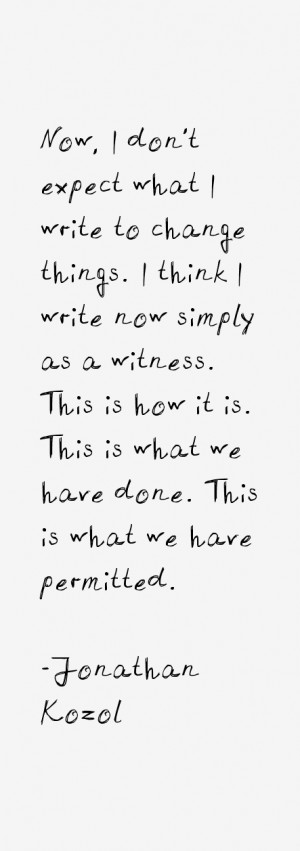 Now, I don't
expect what I
write to change
things. I think I
write now simply
as a witness.
This is how it is.
This is what we
have done. This
is what we have
permitted.
-Jonathan
Kozol